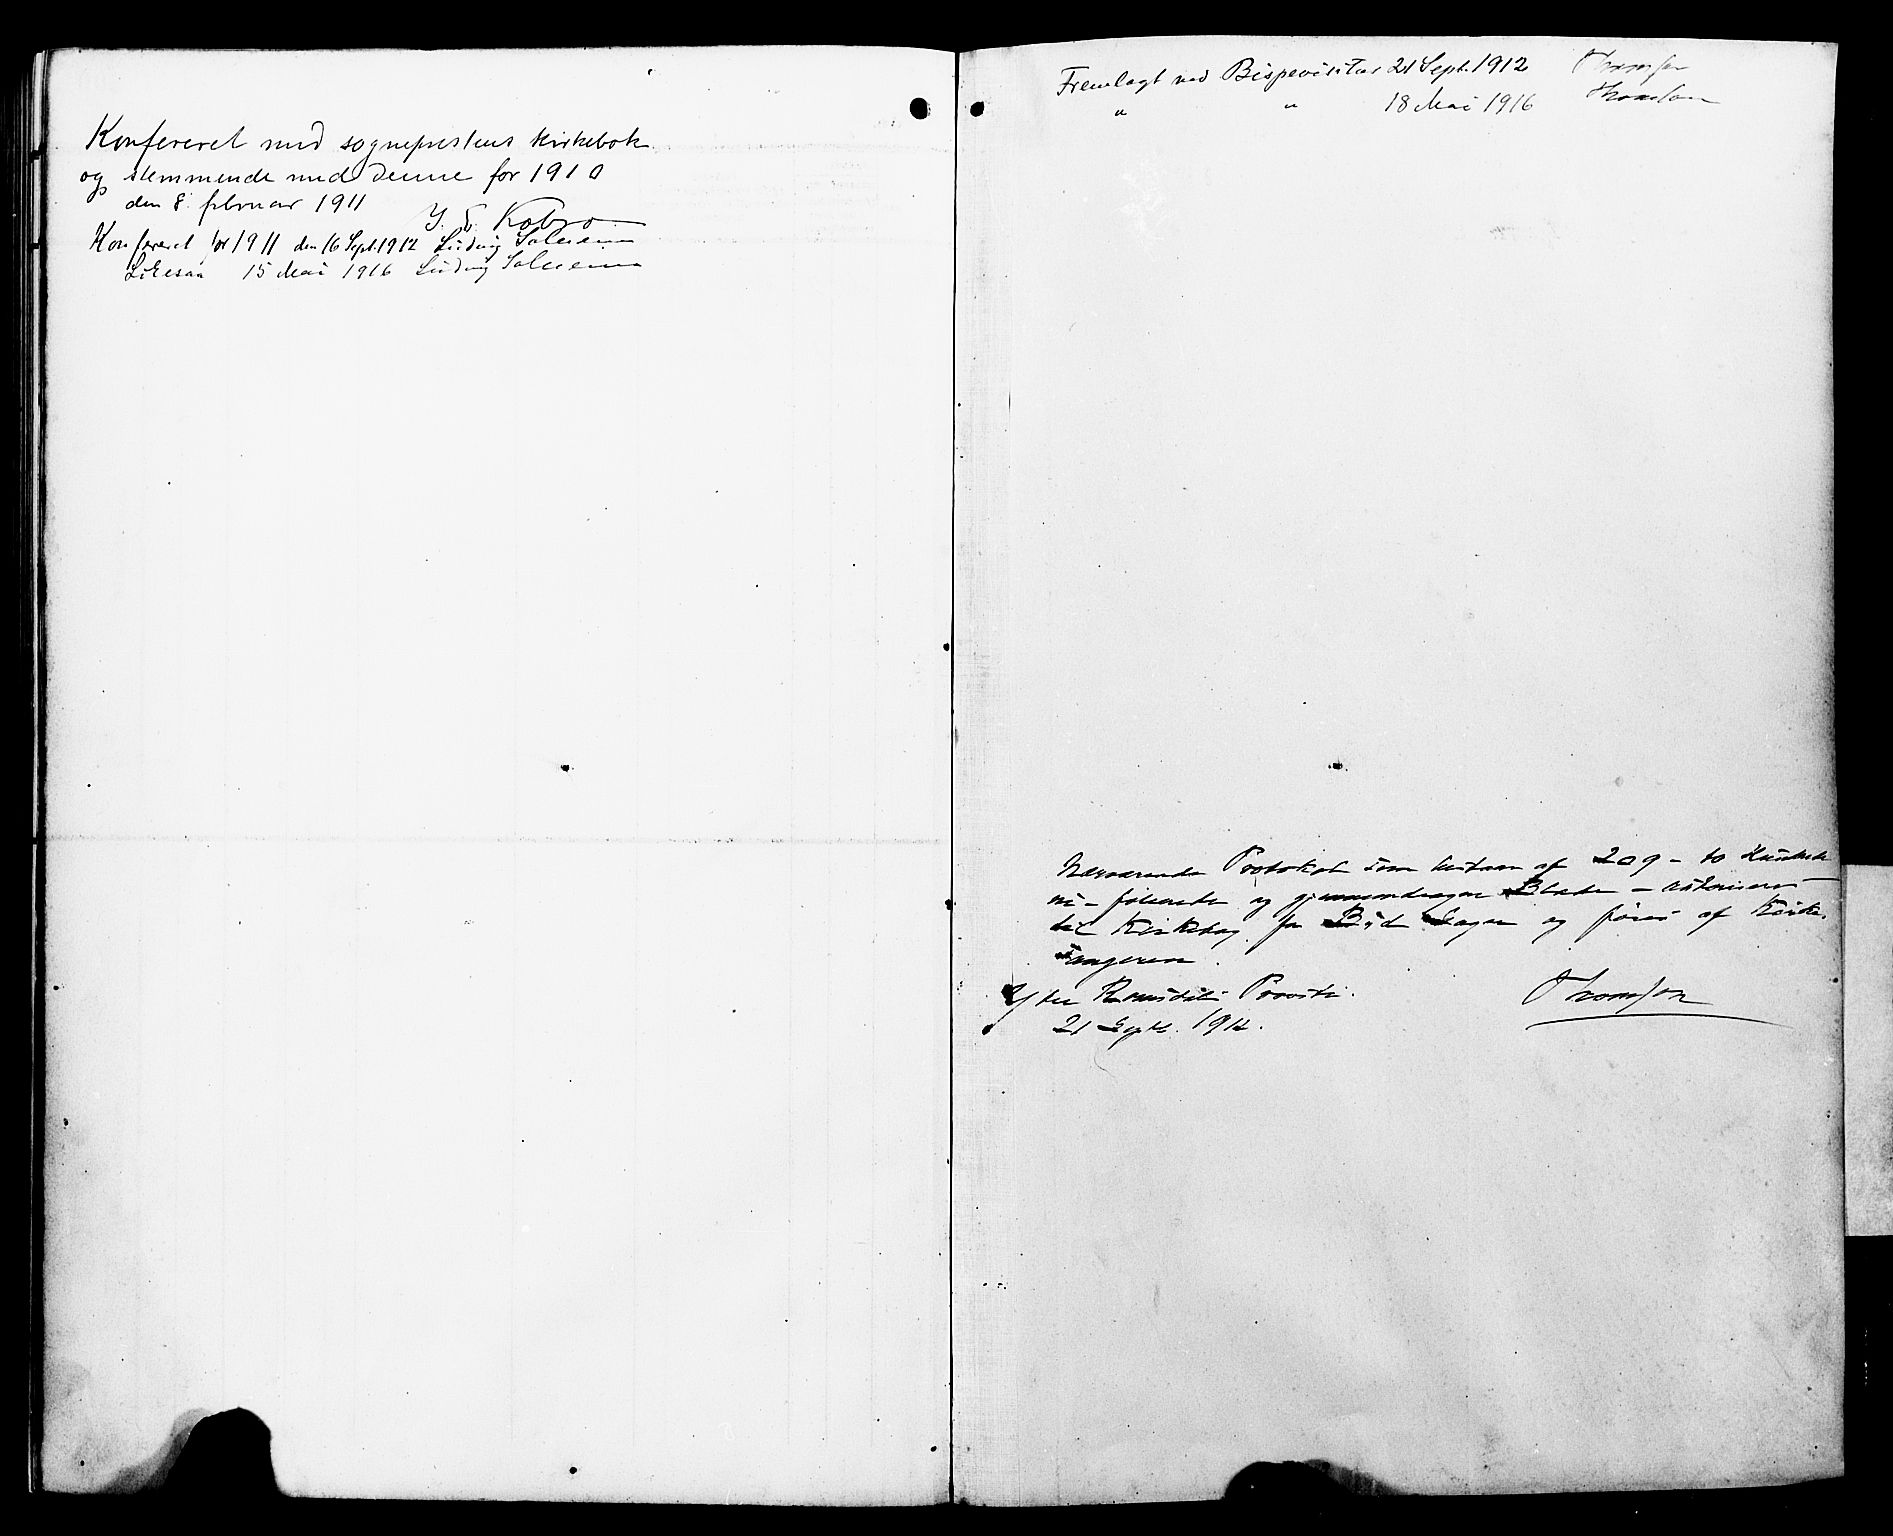 Konfereret med sogneprestens kirkebok
og stemmende med denne for 1910
den 8. februar 1911
Kobro
Konfereret for 1911 den 16 Sept. 1912 Ludvig
Likesaa 15 Mai 1916 Ludvig
Fremlagt ved Bispevisitas 21 Sept. 1912 Thomsen
" " 18 Mai 1916 Thomsen
Nærværende Protokol som bestaar af 209 - to Hundrede
ni - folierede og gjennemdragne Blade - autoriseres
til Kirkebog for Bud Sogn og føres af Kirke-
sangeren.
Ytre Romsdals Provsti.
Thomsen
21 Septb. 1912.